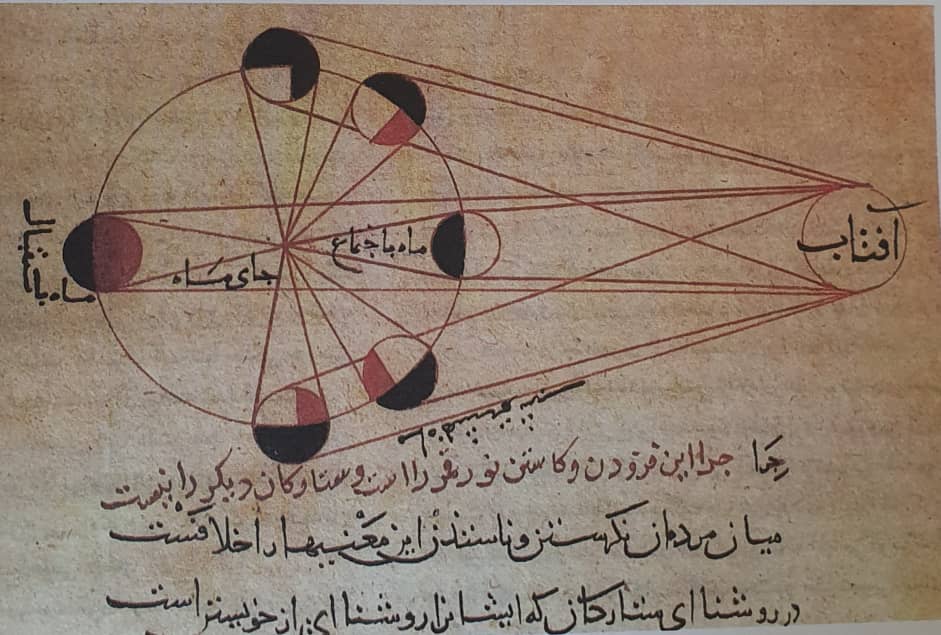 آفتاب
ماه باجتماع
جای ماه
ماه باستقبال
چرا این فزودن و کاستن نور قمر را است و ستارکان دیکر را نیست
میان مردمان نکرستن و ناستدن این معنیها را اخلافست
در روشنا ای ستارکان که ایشانرا روشنا ای از خویشتن است